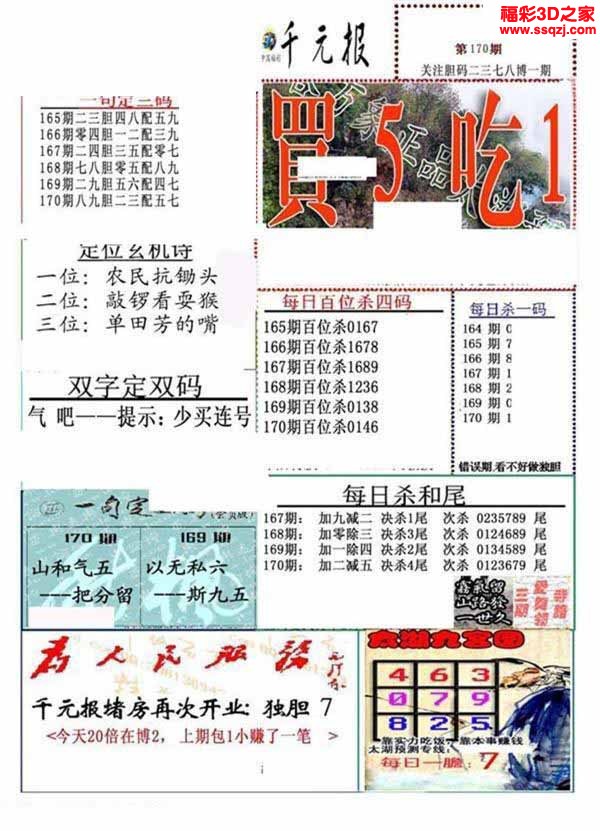 福彩3D之家
www.ssqzj.com
千元报
第170期
关注胆码二三七八博一期
一句定三码
165期二三胆四八配五九
166期零四胆一二配三九
167期二四胆三五配零七
168期七八胆零五配八九
169期二九胆五六配四七
170期八九胆二三配五七
買5吃1
定位玄机诗
一位：农民抗锄头
二位：敲锣看耍猴
三位：单田芳的嘴
每日百位杀四码
165期百位杀0167
166期百位杀1678
167期百位杀1689
168期百位杀1236
169期百位杀0138
170期百位杀0146
每日杀一码
164 期 0
165 期 7
166 期 8
167 期 1
168 期 2
169 期 0
170 期 1
错误期,看不好做独胆
双字定双码
气 吧——提示：少买连号
一句定
(会员版)
170 期
山和气五
---把分留
169 期
以无私六
---斯九五
每日杀和尾
167期： 加九减二 决杀1尾 次杀 0235789 尾
168期： 加零除三 决杀3尾 次杀 0124689 尾
169期： 加一除四 决杀2尾 次杀 0134589 尾
170期： 加二减五 决杀4尾 次杀 0123679 尾
为人民服务
千元报堵房再次开业：独胆 7
<今天20倍在博2，上期包1小赚了一笔 >
太湖九宫图
4 6 3
0 7 9
8 2 5
靠实力吃饭，靠本事赚钱
太湖预测专线：
每日一胆：7